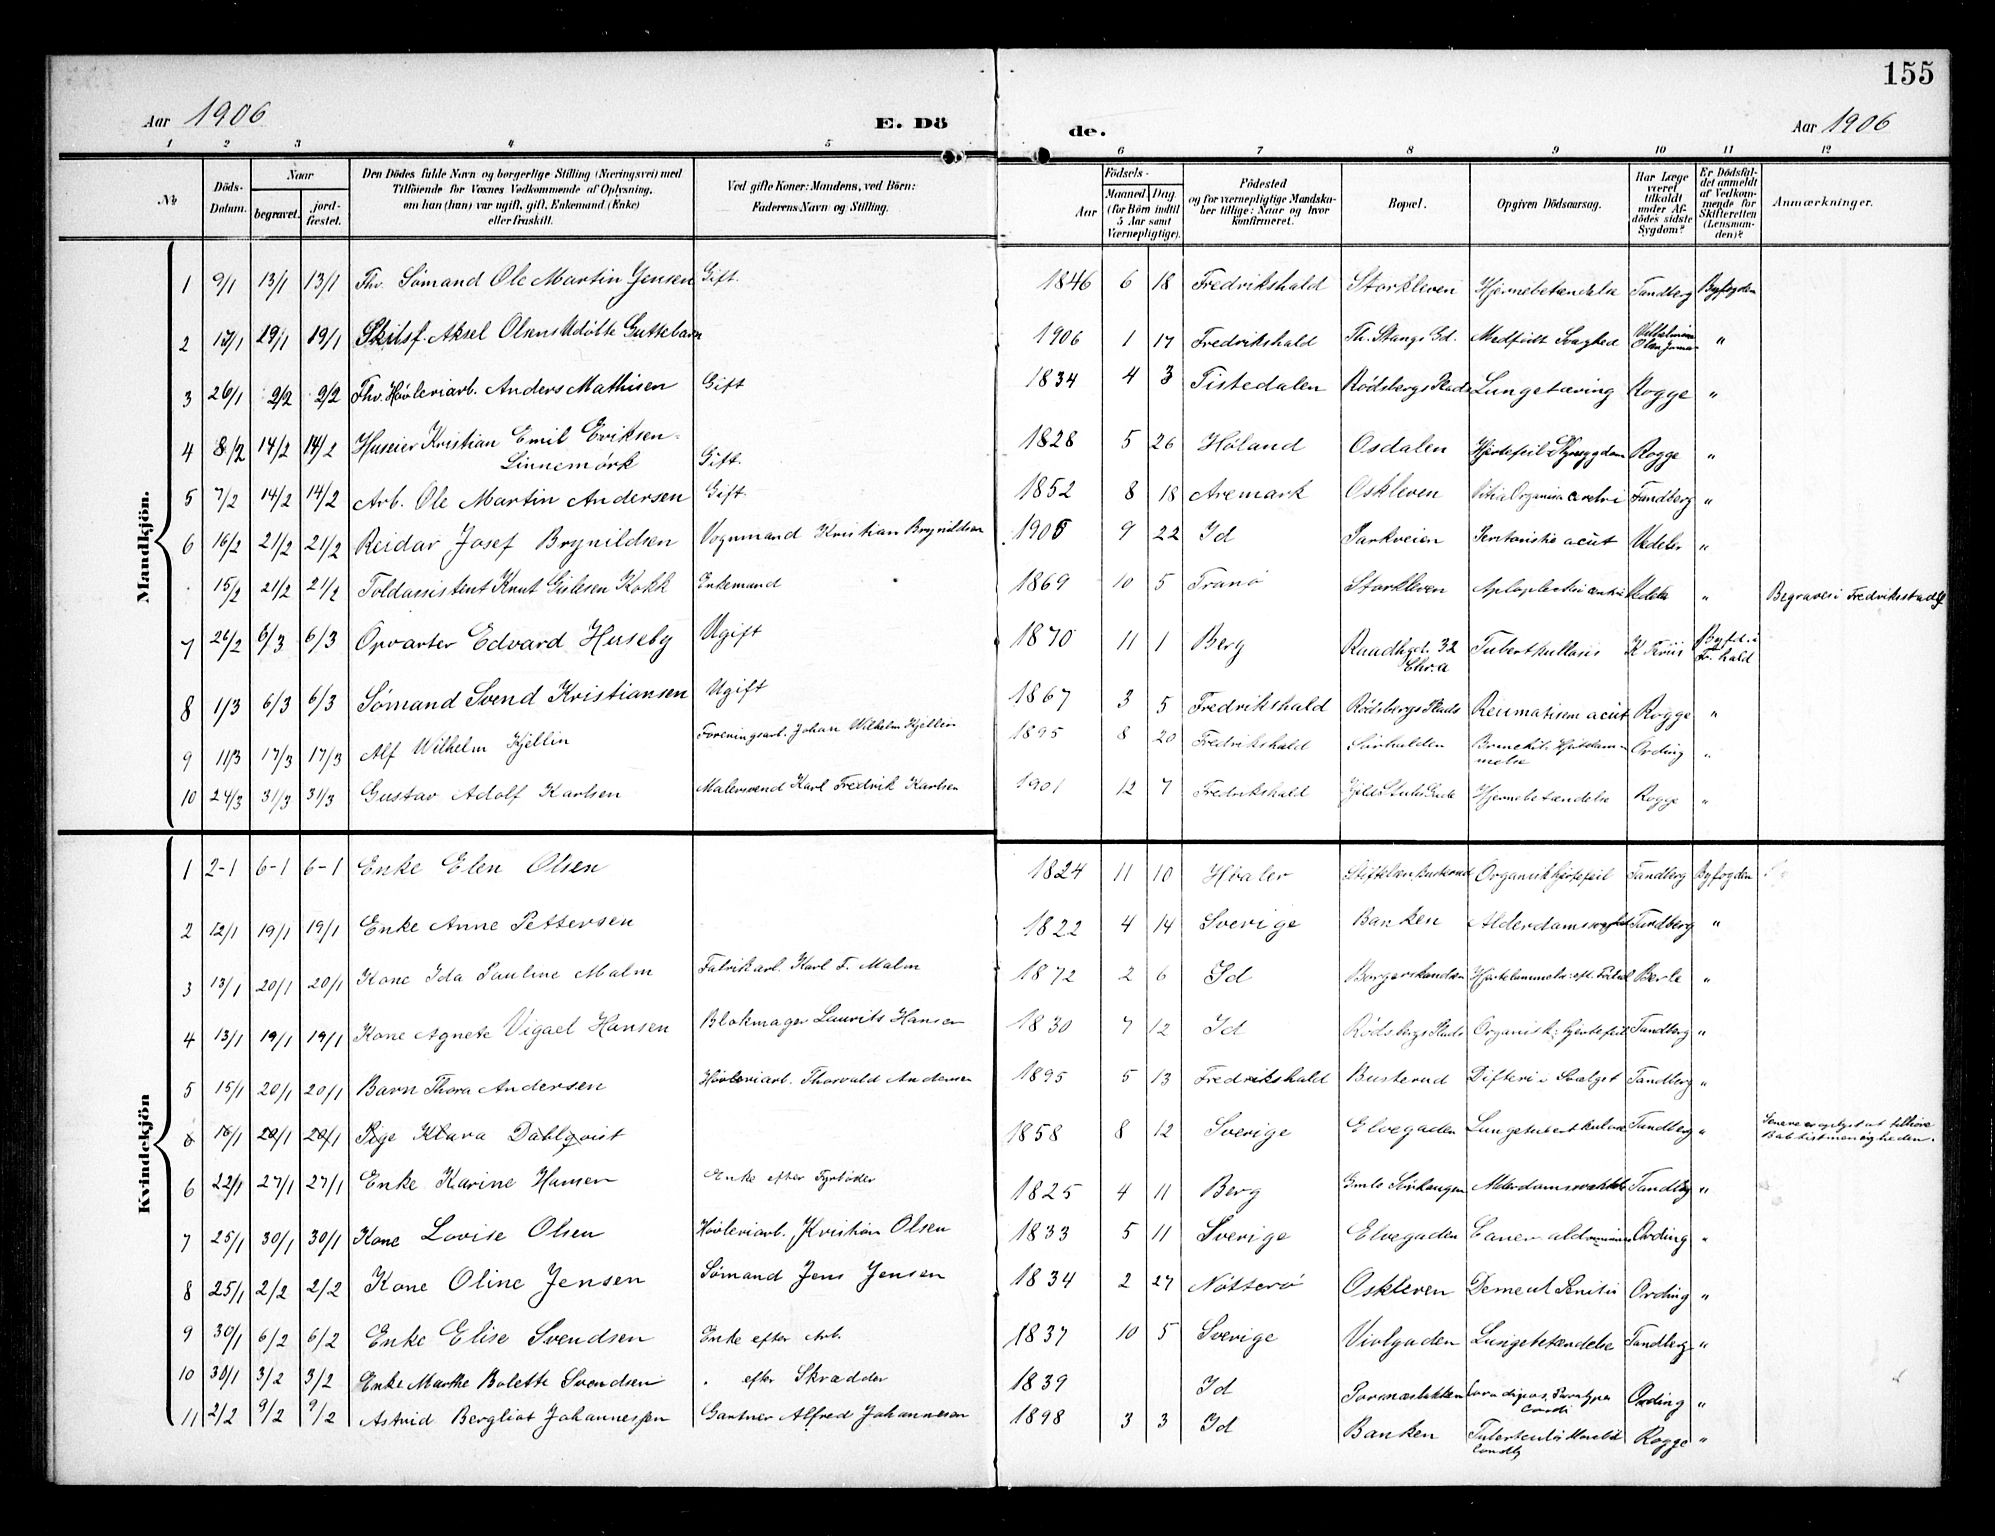 155
Aar 1906 E. Dö de. Aar 1906
1 2 3 4 5 6 7 8 9 10 11 12
№ Döds-Datum. Naar begravet. jord-fæstet. Den Dödes fulde Navn og borgerlige Stilling (Næringsvei) med Tilföiende for Voxnes Vedkommende af Oplysning, om han (hun) var ugift, gift, Enkemand (Enke) eller fraskilt. Ved gifte Koner: Mandens, ved Börn: Faderens Navn og Stilling. Aar Födsels- Maaned Dag (for Börn indtil 5 Aar samt Værnepligtige). Födested og for værnepligtige Mandskaber tillige: Naar og hvor konfirmeret. Bopæl. Opgiven Dödsaarsag. Har Læge været tilkaldt under Afdödes sidste Sygdom? Er Dödsfaldet anmeldt af Vedkommende for Skifteretten (Lensmanden)? Anmærkninger.
Mandkjön.
1 9/1 13/1 13/1 Fhv. Sømand Ole Martin Jensen Gift. 1846 6 18 Fredrikshald Storkleven Hjernebetændelse Tandberg Byfogden
2 17/1 19/1 19/1 Aksel Olens Guttebarn 1906 1 17 Fredrikshald Th. Stangs Gd. Medfödt Svaghed "
3 26/1 2/2 2/2 Fhv. Høvleriarb. Anders Mathisen Gift 1834 4 3 Tistedalen Rödsbergs Plads Lungetæring Rogge "
4 8/2 14/2 14/2 Huseier Kristian Emil Eriksen
Linnemörk Gift. 1828 5 26 Høland Osdalen Hjertefeil Rogge "
5 7/2 14/2 14/2 Arb. Ole Martin Andersen Gift 1852 8 18 Aremark Oskleven Vitia Organisa Tandberg "
6 16/2 21/2 21/2 Reidar Josef Brynildsen Vognmand Kristian Brynildsen 1905 9 22 Id Parkveien acut Vedeler "
15/2 21/2 21/2 Toldassistent Knut Gislesen Kokk Enkemand 1869 10 5 Tranö Storkleven " Begraves i Fredrikstad
7 26/2 6/3 6/3 Opvarter Edvard Huseby Ugift 1870 11 1 Berg 32
Chr.a Byfd. i
Fr. hald
8 1/3 6/3 6/3 Sømand Svend Kristiansen Ugift 1867 3 5 Fredrikshald Rödsbergs Plads Reumatisem acut Rogge "
9 11/3 17/3 17/3 Alf Wilhelm Kjellin Foreningsarb. Johan Wilhelm Kjellin 1895 8 20 Fredrikshald Ording "
10 24/3 31/3 31/3 Gustav Adolf Karlsen Malersvend Karl Fredrik Karlsen 1901 12 7 Fredrikshald Hjernebetændelse Rogge "
Kvindekjön
1 2-1 6-1 6-1 Enke Elen Olsen 1824 11 10 Hvaler Organisk hjertefeil Tandberg Byfogden
2 12/1 19/1 19/1 Enke Anne Pettersen 1822 4 14 Sverige Banken Tandberg "
3 13/1 20/1 20/1 Kone Ida Pauline Malm Fabrikarb. Karl F. Malm 1872 2 6 Id Berle "
4 13/1 19/1 19/1 Kone Agnete Hansen Blokmager Laurits Hansen 1830 7 12 Id Rödsbergs Plads Organisk hjertefeil Tandberg "
5 15/1 20/1 20/1 Barn Thora Andersen Høvleriarb. Thorvald Andersen 1895 5 13 Fredrikshald Busterud Difteri i Svælget Tandberg "
6 16/1 20/1 20/1 Pige Klara Dahlqvist 1858 8 12 Sverige Elvegaden Tandberg " Senere oplyst at tilhøre
6 22/1 27/1 27/1 Enke Karine Hansen Enke efter Fyrböder 1825 4 11 Berg Tandberg "
7 25/1 30/1 30/1 Kone Lovise Olsen Høvleriarb. Kristian Olsen 1833 5 11 Sverige Elvegaden Ording "
8 25/1 2/2 2/2 Kone Oline Jensen Sømand Jens Jensen 1834 2 27 Nötterö Oskleven Ording "
9 30/1 6/2 6/2 Enke Elise Svendsen Enke efter Arb. 1837 10 5 Sverige Violgaden Lungebetændelse Tandberg "
10 30/1 3/2 3/2 Enke Marthe Bolette Svendsen " efter Skrædder 1839 Id Ording "
11 2/2 9/2 9/2 Astrid Bergliot Johannessen Gartner Alfred Johannesen 1898 3 3 Id Banken Rogge "